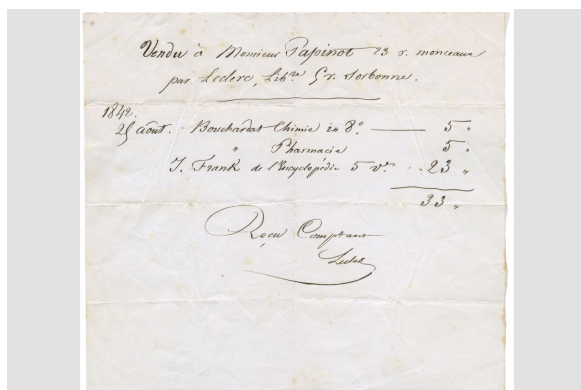 Vendu à Monsieur Papinot 23 r. monceaux
par Leclerc, Lib.re Gr. Sorbonne.
1842.
25 août. Bouchardat Chimie in 8° — 5 "
" Pharmacie 5 "
J. Frank de l'Encyclopédie 5 v. 23 "
33 "
Reçu Comptant
Leclerc